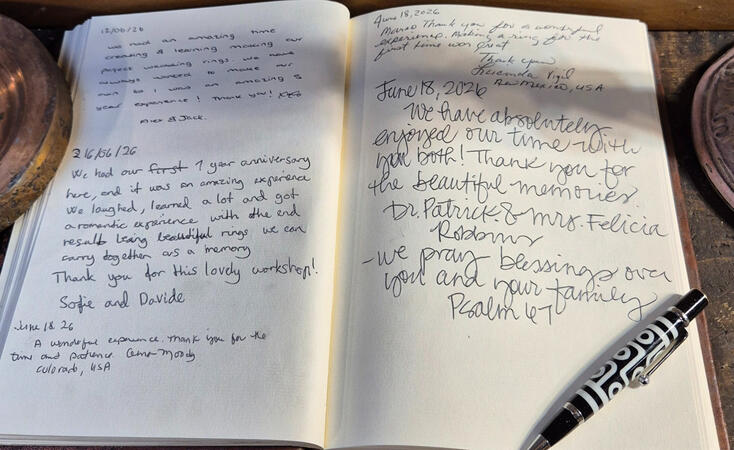 12/06/26
We had an amazing time
creating & learning making our
perfect wedding rings. We have
always wanted to make our
own so it was an amazing 5
year experience! Thank you! xxx
Alex & Jack.
16/06/26
We had our first 7 year anniversary
here, and it was an amazing experience
We laughed, learned a lot and got
a romantic experience with the end
result being beautiful rings we can
carry together as a memory
Thank you for this lovely workshop!
Sofie and Davide
June 18 26
A wonderful experience. Thank you for the
time and patience. Moody
Colorado, USA
June 18, 2026
Marco Thank you for a wonderful
experience. Making a ring for the
first time was great
Thank you
Vigil
New Mexico, USA
June 18, 2026
We have absolutely
enjoyed our time with
you both! Thank you for
the beautiful memories.
Dr. Patrick & Mrs. Felicia
Robbins
-we pray blessings over
you and your family
Psalm 67